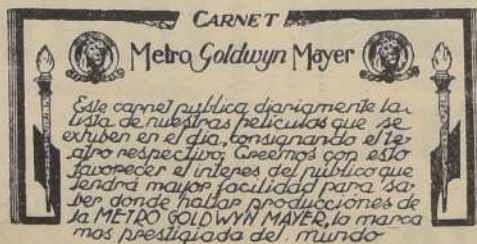 CARNET
Metro Goldwyn Mayer
Este carnet publica diariamente la
lista de nuestras películas que se
exhiben en el día, consignando el te-
atro respectivo; Creemos con esto
favorecer el interes del publico que
tendrá mayor facilidad para sa-
ber donde hallar producciones de
la METRO GOLDWYN MAYER, la marca
mas prestigiada del mundo